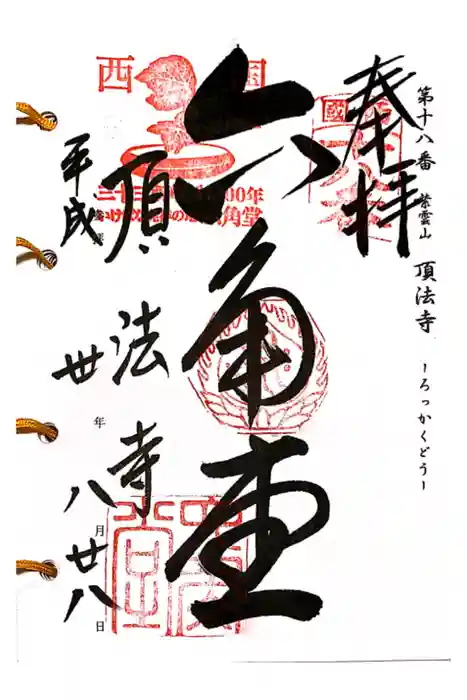 第十八番 紫雲山 頂法寺 ーろっかくどうー
奉拝
六角堂
頂法寺
平成廿年八月廿八日
西国
三十三
00年
いけ
の
角堂